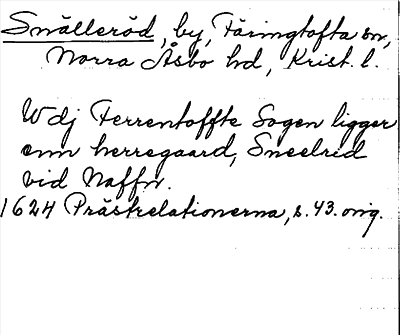 Snälleröd, by, Färingtofta sn,
Norra Åsbo hd, Krist. l.
Wdj Ferrentoffte Sogen ligger
enn herregaard, Sneelrid
vid Naffn.
1624 Prästrelationerna, s. 43. orig.